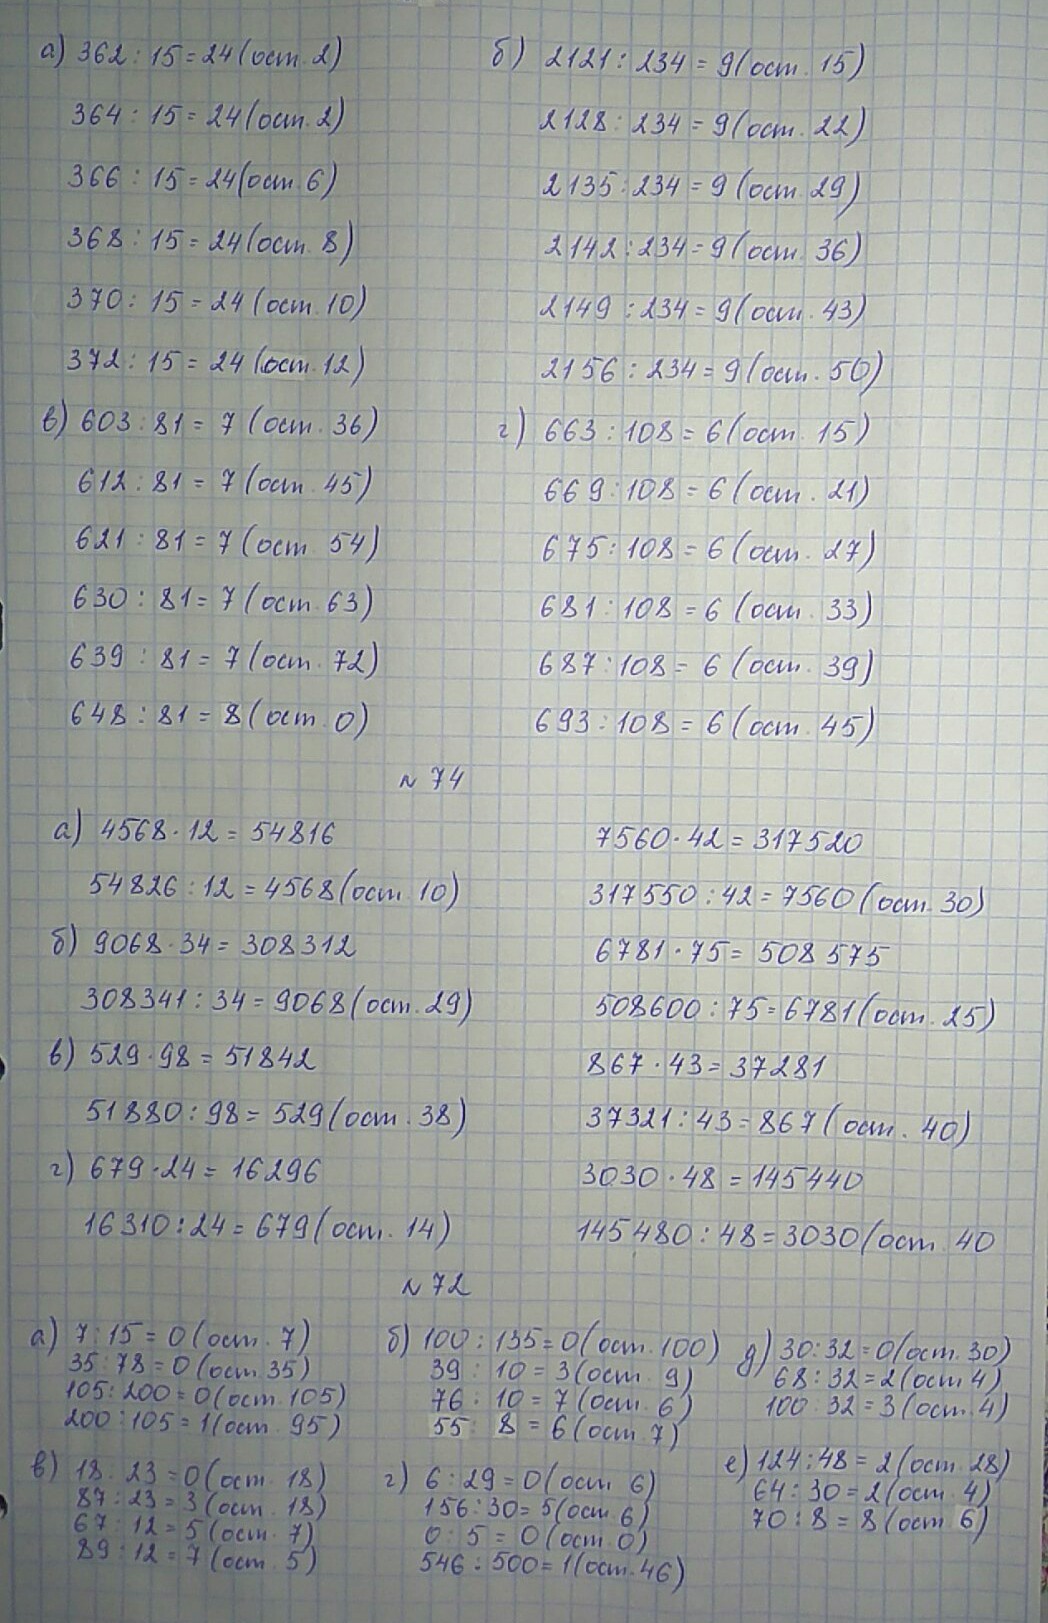 а) 362 : 15 = 24 (ост. 2)
364 : 15 = 24 (ост. 2)
366 : 15 = 24 (ост. 6)
368 : 15 = 24 (ост. 8)
370 : 15 = 24 (ост. 10)
372 : 15 = 24 (ост. 12)
б) 2121 : 234 = 9 (ост. 15)
2128 : 234 = 9 (ост. 22)
2135 : 234 = 9 (ост. 29)
2142 : 234 = 9 (ост. 36)
2149 : 234 = 9 (ост. 43)
2156 : 234 = 9 (ост. 50)
в) 603 : 81 = 7 (ост. 36)
612 : 81 = 7 (ост. 45)
621 : 81 = 7 (ост. 54)
630 : 81 = 7 (ост. 63)
639 : 81 = 7 (ост. 72)
648 : 81 = 8 (ост. 0)
г) 663 : 108 = 6 (ост. 15)
669 : 108 = 6 (ост. 21)
675 : 108 = 6 (ост. 27)
681 : 108 = 6 (ост. 33)
687 : 108 = 6 (ост. 39)
693 : 108 = 6 (ост. 45)
№ 74
а) 4568 · 12 = 54816
7560 · 42 = 317520
54826 : 12 = 4568 (ост. 10)
317550 : 42 = 7560 (ост. 30)
б) 9068 · 34 = 308312
6781 · 75 = 508 575
308341 : 34 = 9068 (ост. 29)
508600 : 75 = 6781 (ост. 25)
в) 529 · 98 = 51842
867 · 43 = 37281
51880 : 98 = 529 (ост. 38)
37321 : 43 = 867 (ост. 40)
г) 679 · 24 = 16296
3030 · 48 = 145440
16310 : 24 = 679 (ост. 14)
145480 : 48 = 3030 (ост. 40
№ 72
а) 7 : 15 = 0 (ост. 7)
35 : 78 = 0 (ост. 35)
105 : 200 = 0 (ост. 105)
200 : 105 = 1 (ост. 95)
б) 100 : 135 = 0 (ост. 100)
39 : 10 = 3 (ост. 9)
76 : 10 = 7 (ост. 6)
55 : 8 = 6 (ост. 7)
д) 30 : 32 = 0 (ост. 30)
68 : 32 = 2 (ост 4)
100 : 32 = 3 (ост. 4)
в) 18 : 23 = 0 (ост. 18)
87 : 23 = 3 (ост. 18)
67 : 12 = 5 (ост. 7)
89 : 12 = 7 (ост. 5)
г) 6 : 29 = 0 (ост 6)
156 : 30 = 5 (ост. 6)
0 : 5 = 0 (ост. 0)
546 : 500 = 1 (ост. 46)
е) 124 : 48 = 2 (ост. 28)
64 : 30 = 2 (ост. 4)
70 : 8 = 8 (ост 6)